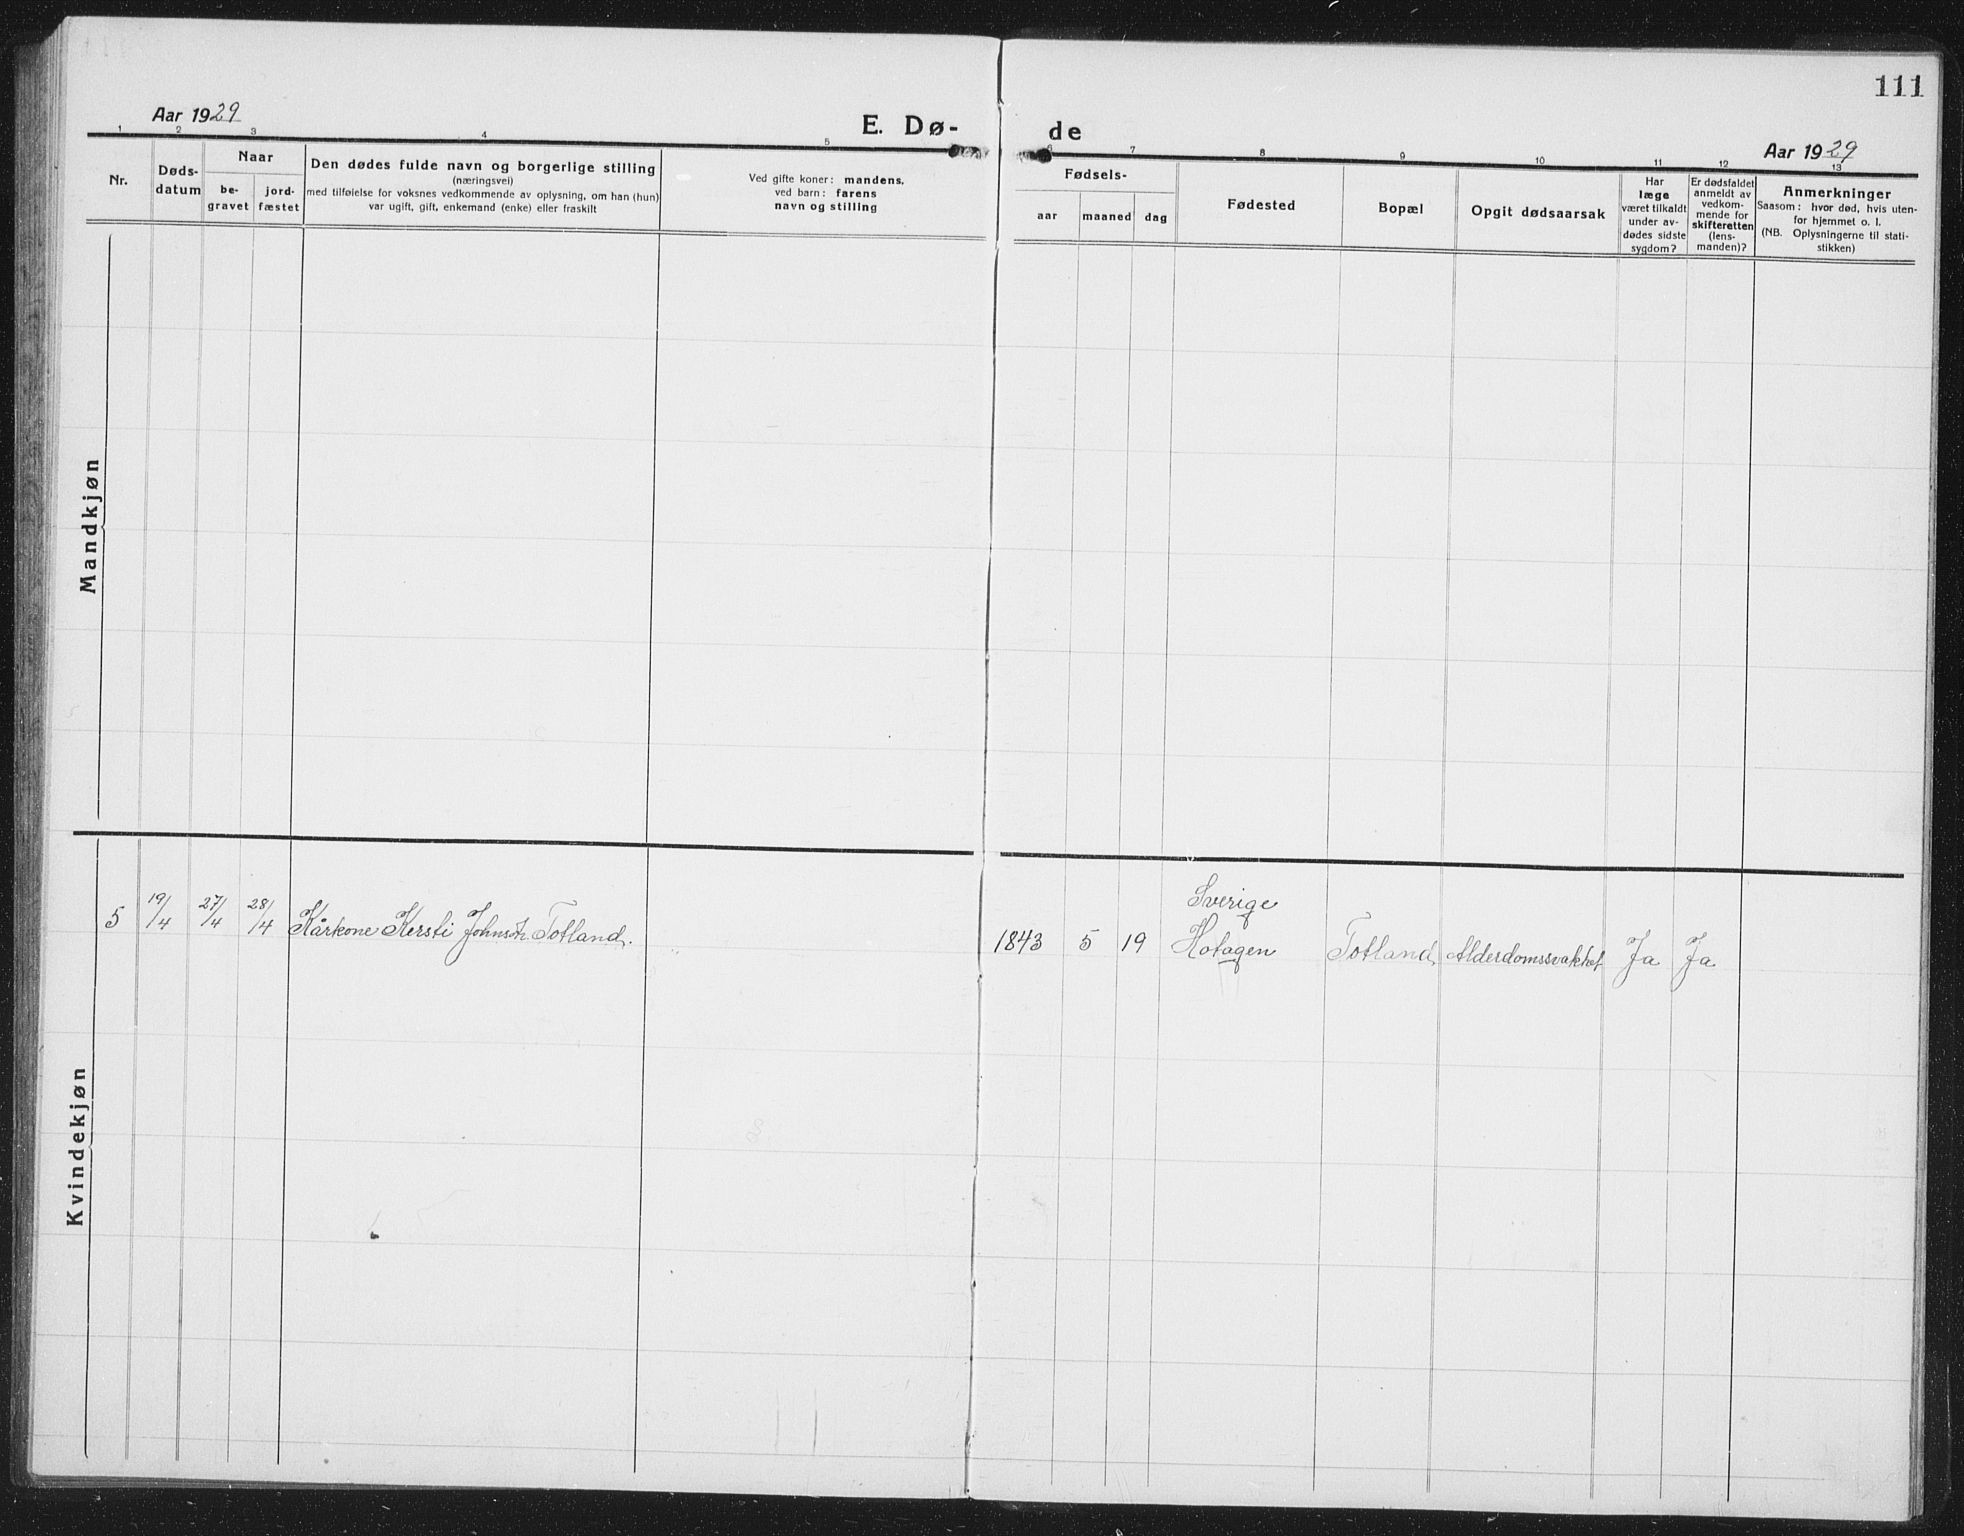 111
Aar 1929
E. Dø-
de
Aar 1929
1 2 3 4 5 6 7 8 9 10 11 12 13
Nr.
Døds-
datum
Naar
be-
gravet
jord-
fæstet
Den dødes fulde navn og borgerlige stilling
(næringsvei)
med tilføielse for voksnes vedkommende av oplysning, om han (hun)
var ugift, gift, enkemand (enke) eller fraskilt
Ved gifte koner: mandens,
ved barn: farens
navn og stilling
Fødsels-
aar
maaned
dag
Fødested
Bopæl
Opgit dødsaarsak
Har
læge
været tilkaldt
under av-
dødes sidste
sygdom?
Er dødsfaldet
anmeldt av
vedkom-
mende for
skifteretten
(lens-
manden)?
Anmerkninger
Saasom: hvor død, hvis uten-
for hjemmet o. l.
(NB. Oplysningerne til stati-
stikken)
Mandkjøn
Kvindekjøn
5 19/4 27/4 28/4 Kårkone Kersti Totland.
Sverige
1843 5 19 Hotagen Totland Alderdomssvakhet Ja Ja